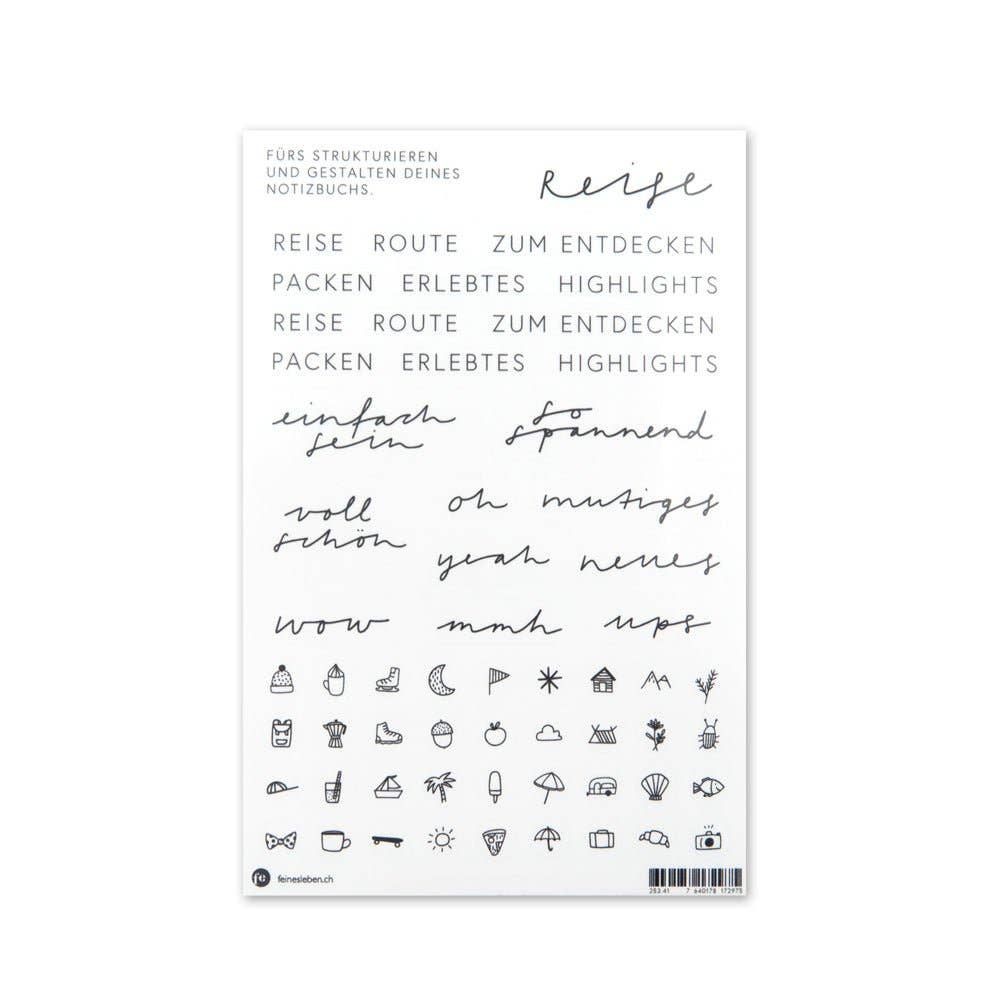 FÜRS STRUKTURIEREN
UND GESTALTEN DEINES
NOTIZBUCHS.
Reise
REISE ROUTE ZUM ENTDECKEN
PACKEN ERLEBTES HIGHLIGHTS
REISE ROUTE ZUM ENTDECKEN
PACKEN ERLEBTES HIGHLIGHTS
einfach
sein
so
spannend
voll
schön
oh mutiges
yeah neues
wow mmh ups
fé feinesleben.ch
253.41 7 640178 172975